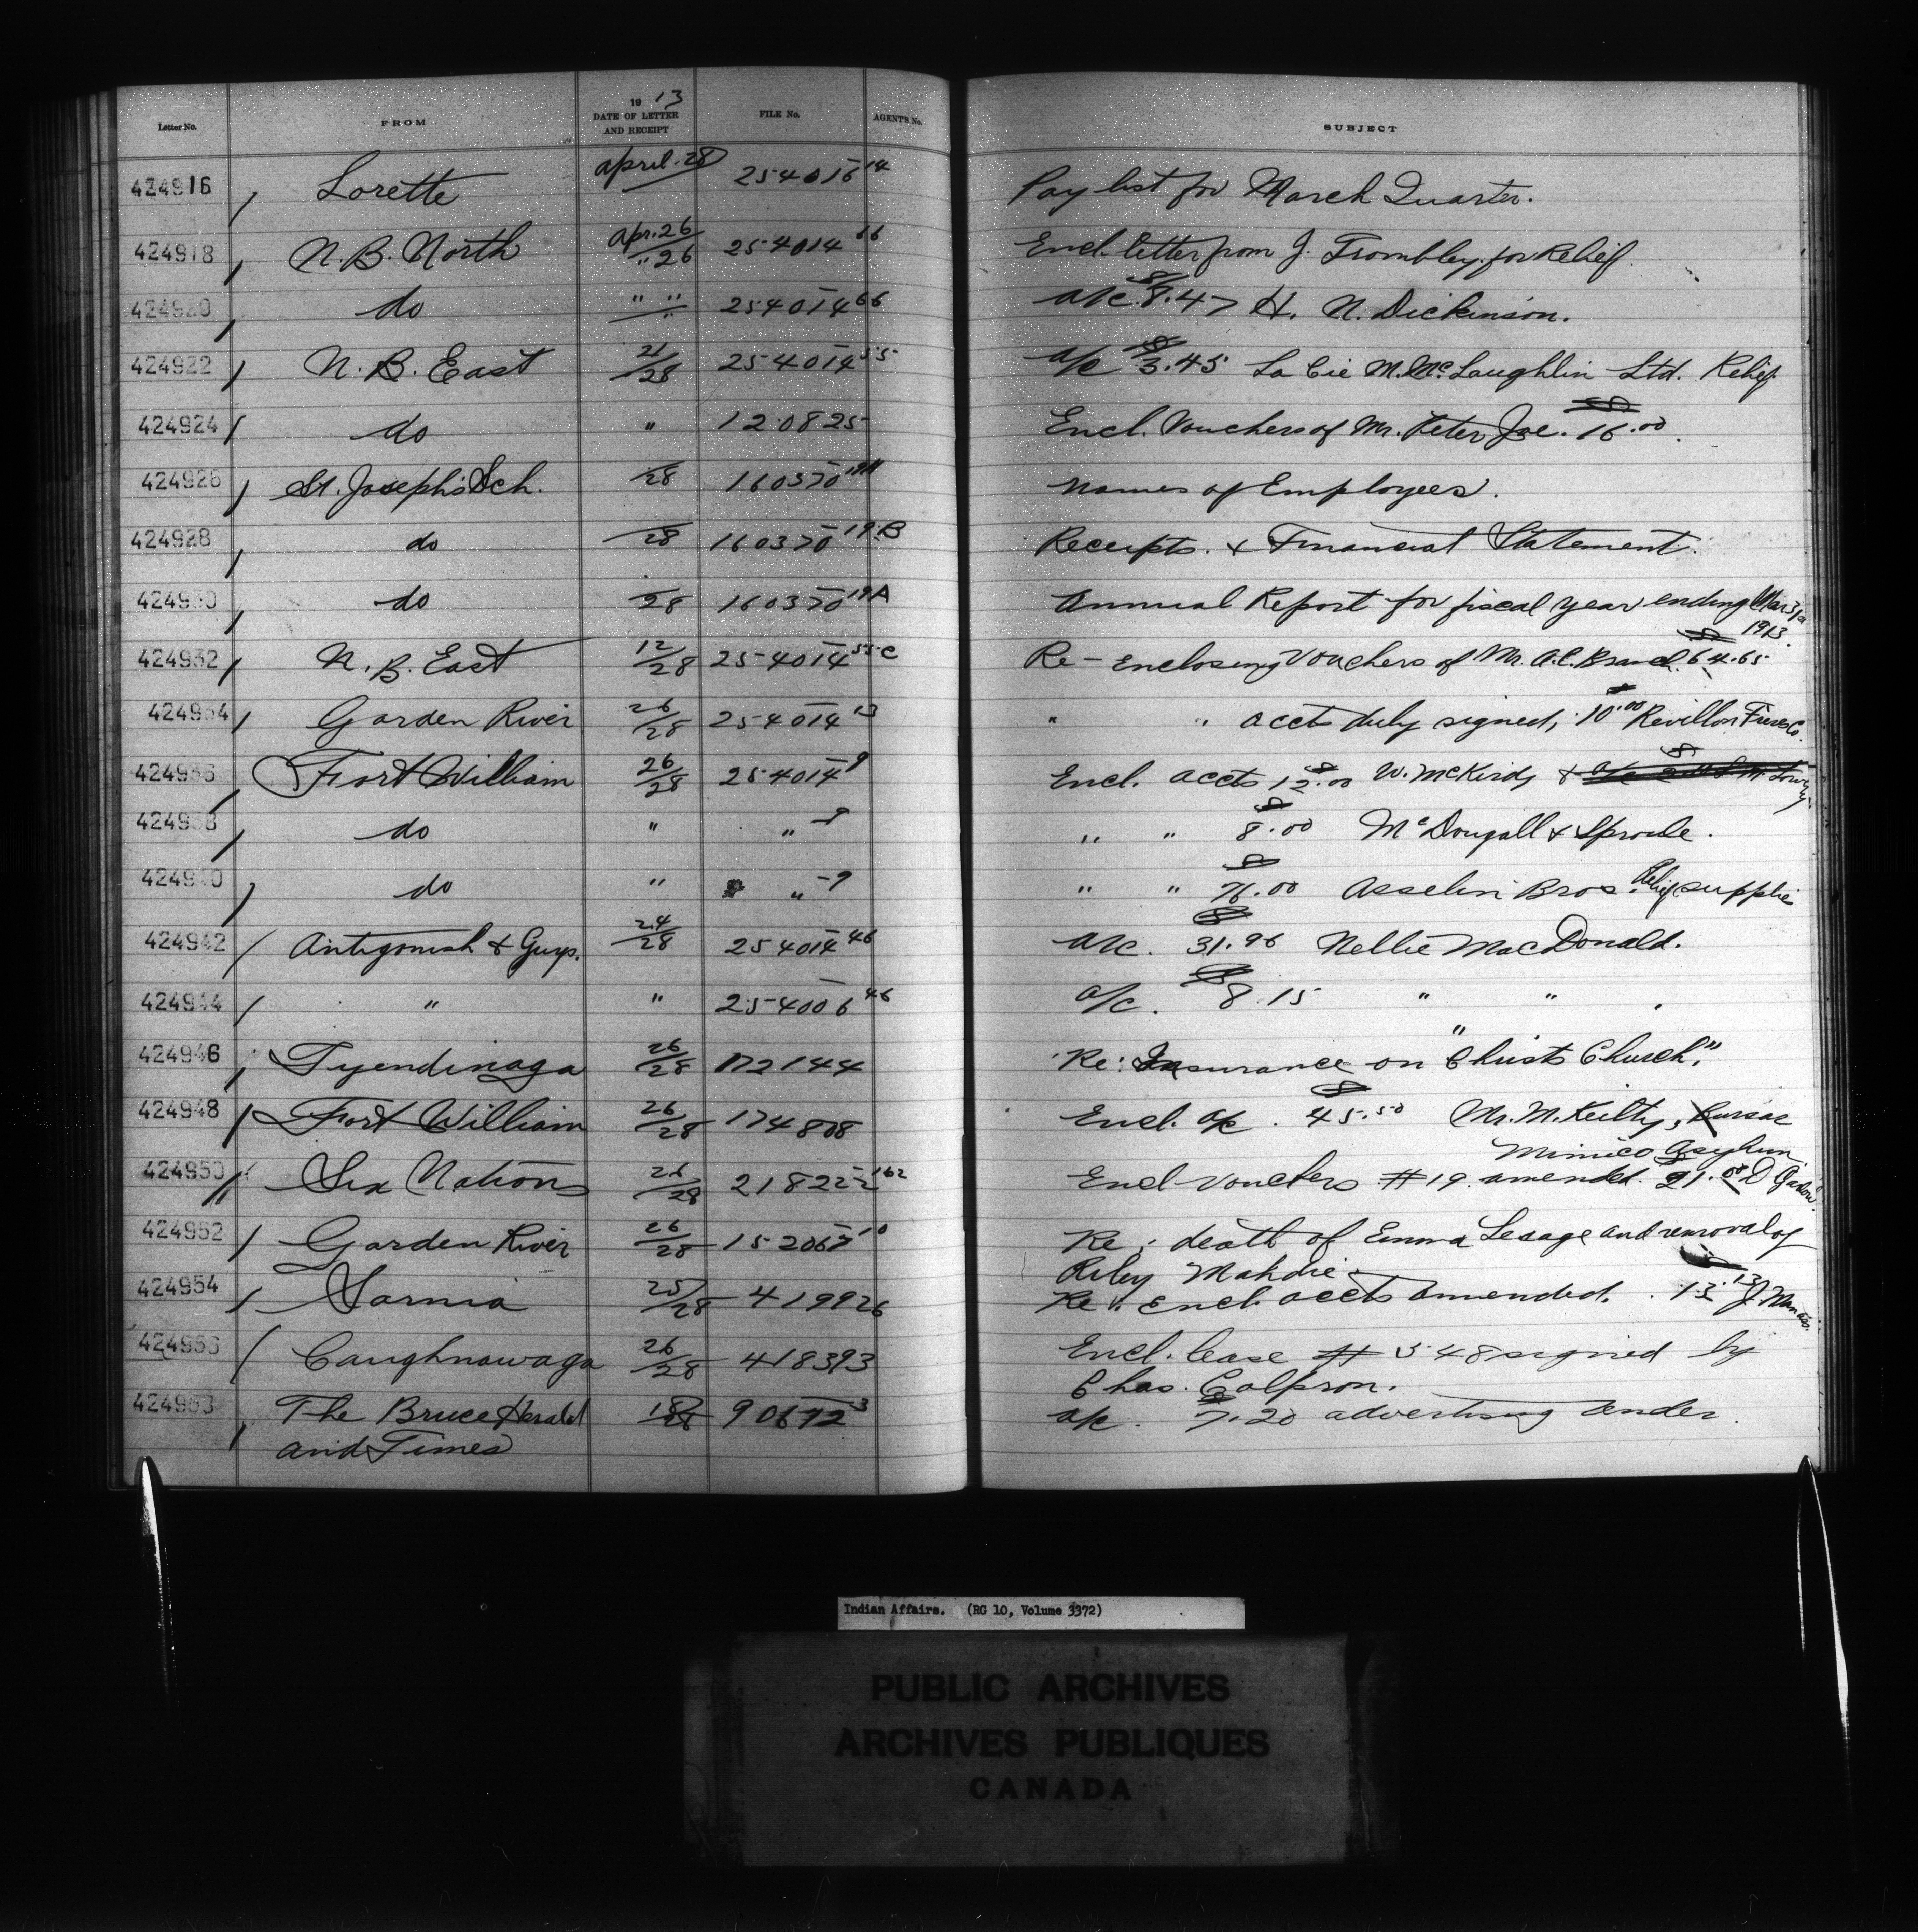 Letter No. FROM 19 13 DATE OF LETTER AND RECEIPT FILE No. AGENT'S No. SUBJECT
424916 Lorette april 28 254015 14 Pay list for March Quarter.
424918 N. B. North Apr. 26/" 26 254014 66 Encl. letter from J. Trombley for Relief.
424920 do " " 254014 66 a/c $8.47 H. N. Dickinson.
424922 N. B. East 21/28 254014 55 a/c $3.45 La Cie M. McLaughlin Ltd. Relief
424924 do " 120825 Encl. Vouchers of Mr. Peter Joe. $16.00.
424926 St. Joseph's Sch. /28 160370 Names of Employees.
424928 do /28 160370 19.B Receipts. & Financial Statement.
424930 do /28 160370 19A Annual Report for fiscal year ending Mar 31st 1913.
424932 N. B. East 12/28 254014 55-C Re-Enclosing Vouchers of Mr. A.C. Branch $64.65
424934 Garden River 26/28 254014 13 " " accts duly signed, $10.00 Revillon Freres Co.
424936 Fort William 26/28 254014 9 Encl. accts $12.00 W. McKirdy &
424938 do " " -9 " " $8.00 McDougall & Sproule.
424940 do " " -9 " " $76.00 Asselin Bros. Relief supplie
424942 Antigonish & Guys. 24/28 254014 46 a/c. $31.96 Nellie MacDonald.
424944 " " 254006 46 a/c. $8.15 " " "
424946 Tyendinaga 26/28 172144 Re: Insurance on "Christs Church."
424948 Fort William 26/28 174808 Encl. a/c. $45.50 Mr. M. Keilty, Bursar
Mimico Asylum.
424950 Six Nations 26/28 218222 162 Encl vouchers #19 amended. $21.00 D
424952 Garden River 26/28 152067 10 Re: death of Emma Lesage and removal of
Riley Mahdie.
424954 Sarnia 25/28 419926 Re: Encl. accts amended. $13.13 J.
424956 Caughnawaga 26/28 418393 Encl. lease # 548 signed by
Chas.
424958 The Bruce Herald 18/28 90672 3 a/c. $7.20 advertising tender.
and Times
Indian Affairs. (RG 10, Volume 3372)
PUBLIC ARCHIVES
ARCHIVES PUBLIQUES
CANADA